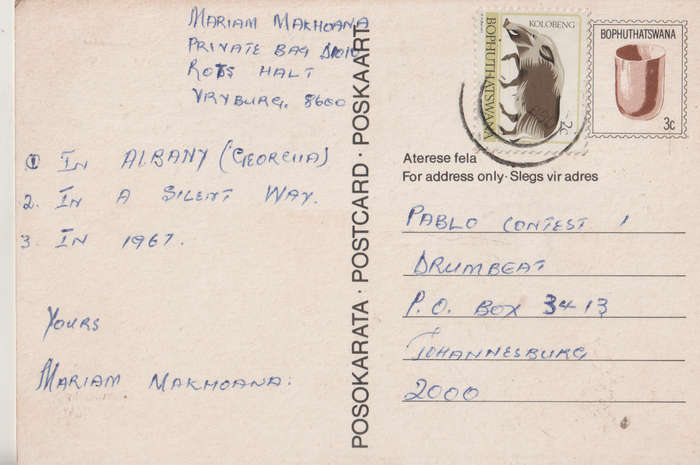 MARIAM MAKHOANA
PRIVATE BAG
HALT
VRYBURG, 8600
① IN ALBANY (GEORGIA)
2. IN A SILENT WAY.
3. IN 1967.
YOURS
MARIAM MAKHOANA.
POSOKARATA · POSTCARD · POSKAART
KOLOBENG
BOPHUTHATSWANA
BOPHUTHATSWANA
3c
Aterese fela
For address only · Slegs vir adres
PABLO CONTEST 1
DRUMBEAT
P.O. BOX 3413
JOHANNESBURG
2000